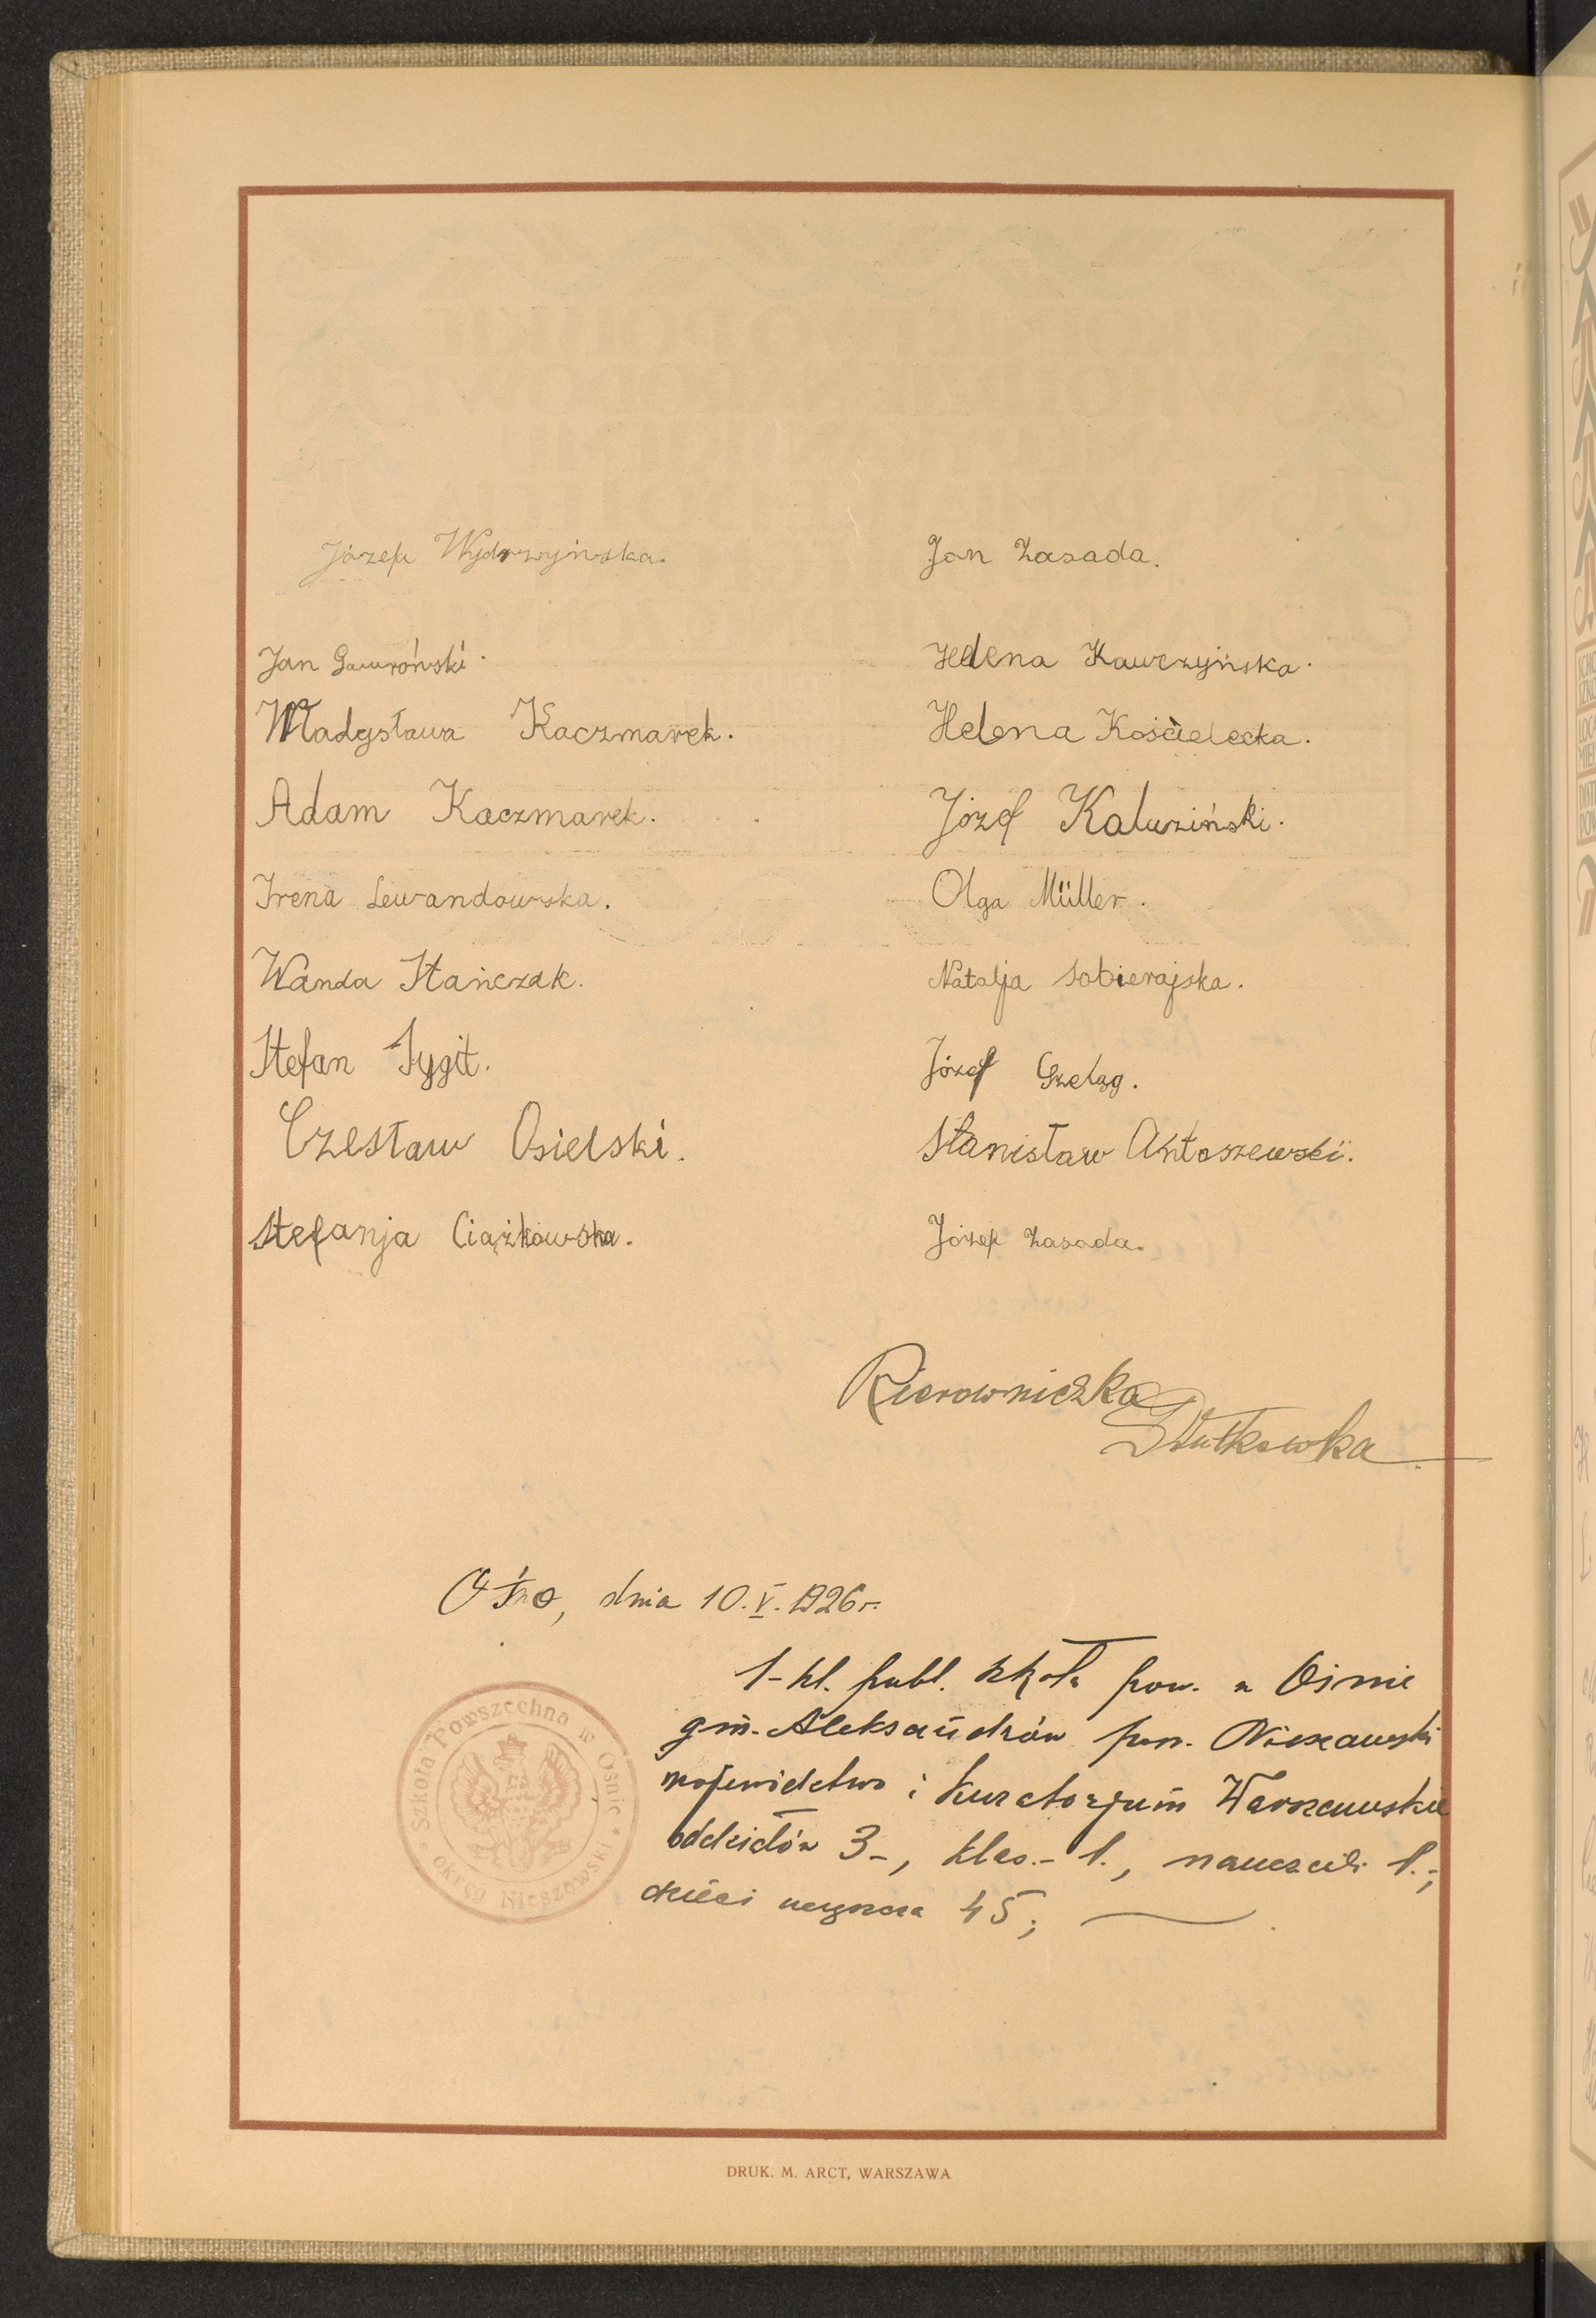 Józef Wydrzyńska.
Jan Gawroński.
Władysława Kaczmarek.
Adam Kaczmarek.
Irena Lewandowska.
Wanda Stańczak.
Stefan Sygit.
Czesław Osielski.
Stefanja Ciążkowska.
Jan Zasada.
Helena Kawczyńska.
Helena Kościelecka.
Józef Kaluziński.
Olga Müller.
Natalja Sobierajska.
Józef Szeląg.
Stanisław Antoszewski.
Józef Zasada.
Kierowniczka
Ośno, dnia 10.V.1926 r.
1-kl. publ. szkoła pow. w Ośnie
gm. Aleksandrów pow. Nieszawski
województwo i Kuratorjum Warszawskie
oddziałów 3-, klas.- 1., nauczycieli 1.-;
dzieci uczęszcza 45;
Szkoła Powszechna w Ośnie
Okręg Nieszawski
DRUK. M. ARCT, WARSZAWA